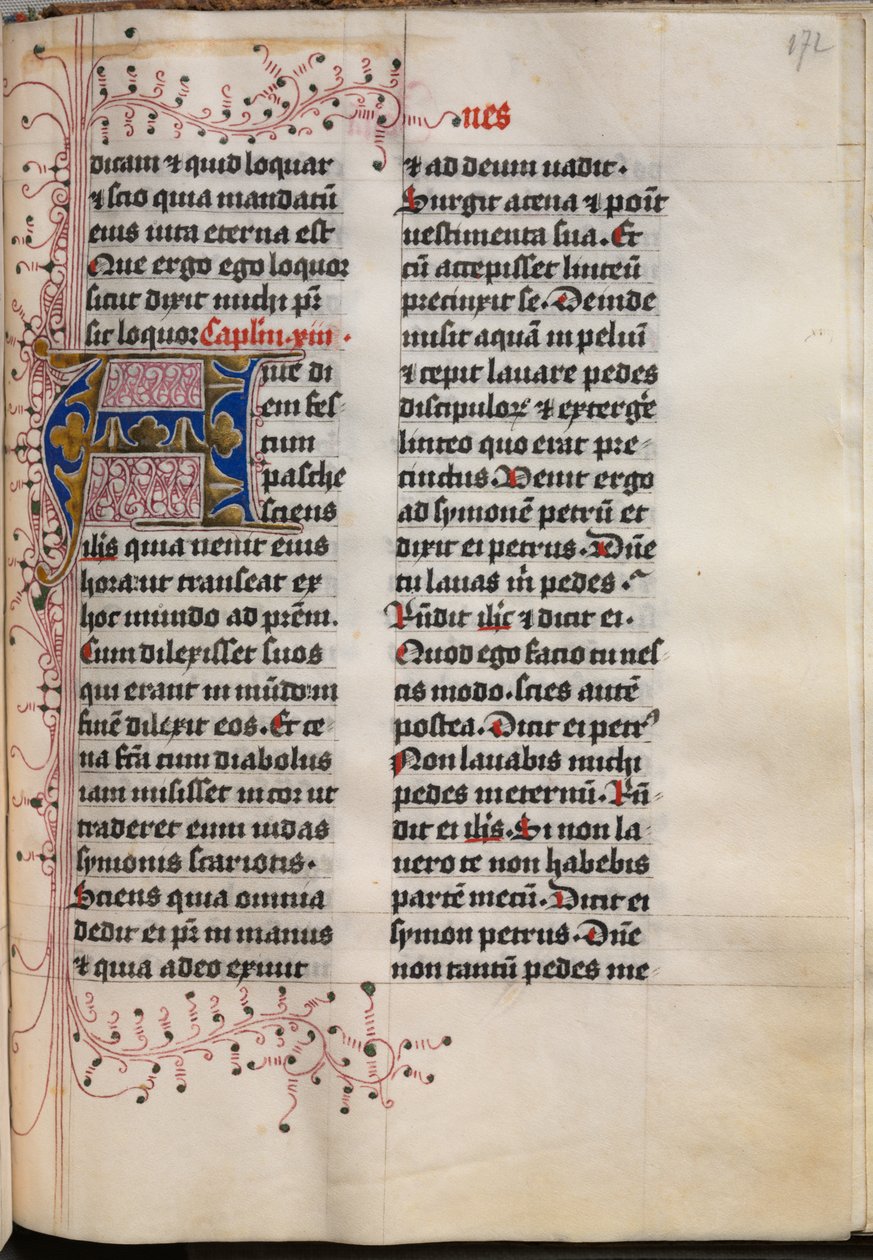 172
nes
dicam ⁊ quid loquar
⁊ scio quia mandatū
eius uita eterna est
Que ergo ego loquor
sicut dixit michi pr̄
sic loquor Caplm̄.xiii.
Ante di
em fes-
tum
pasche
sciens
ih̄s quia uenit eius
hora ut transeat ex
hoc mundo ad prēm.
Cum dilexisset suos
qui erant in mūdo in
finē dilexit eos. Et ce-
na fcā cum diabolus
iam misisset in cor ut
traderet eum iudas
symonis scariotis.
Sciens quia omnia
dedit ei pr̄ in manus
⁊ quia a deo exiuit
⁊ ad deum uadit.
Surgit a cena ⁊ pōit
uestimenta sua. Et
cū accepisset linteū
precinxit se. Deinde
misit aquā in peluī
⁊ cepit lauare pedes
discipuloꝝ ⁊ extergē
linteo quo erat pre-
cinctus. Uenit ergo
ad symonē petrū et
dixit ei petrus. Dn̄e
tu lauas m̄ pedes.
Rn̄dit ih̄c ⁊ dicit ei.
Quod ego facio tu nes-
cis modo. scies autē
postea. Dicit ei petrꝰ
Non lauabis michi
pedes in eternū. Rn̄-
dit ei ih̄s. Si non la-
uero te non habebis
partē mecū. Dicit ei
symon petrus. Dn̄e
non tantū pedes me-